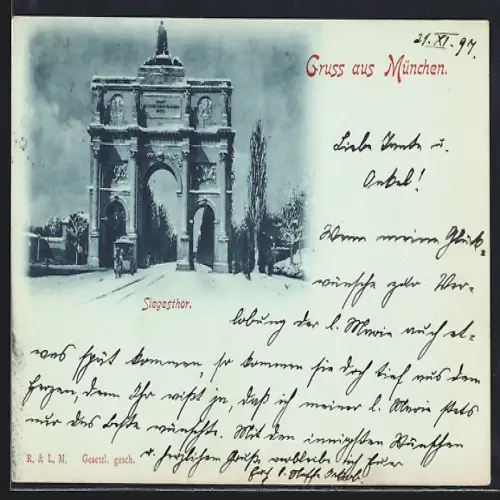 21. XI. 97.
Gruss aus München.
Liebe Tante u.
Onkel!
Wenn meine Glück-
wünsche zur Ver-
lobung der l. Marie auch et-
was spät kommen, so kommen sie doch tief aus dem
Herzen, denn Ihr wißt ja, daß ich meiner l. Marie stets
nur das Beste wünschte. Mit den innigsten Wünschen
u. herzlichen Grüße verbleibe ich Euer
Siegesthor.
R. & L, M. Gesetzl. gesch.